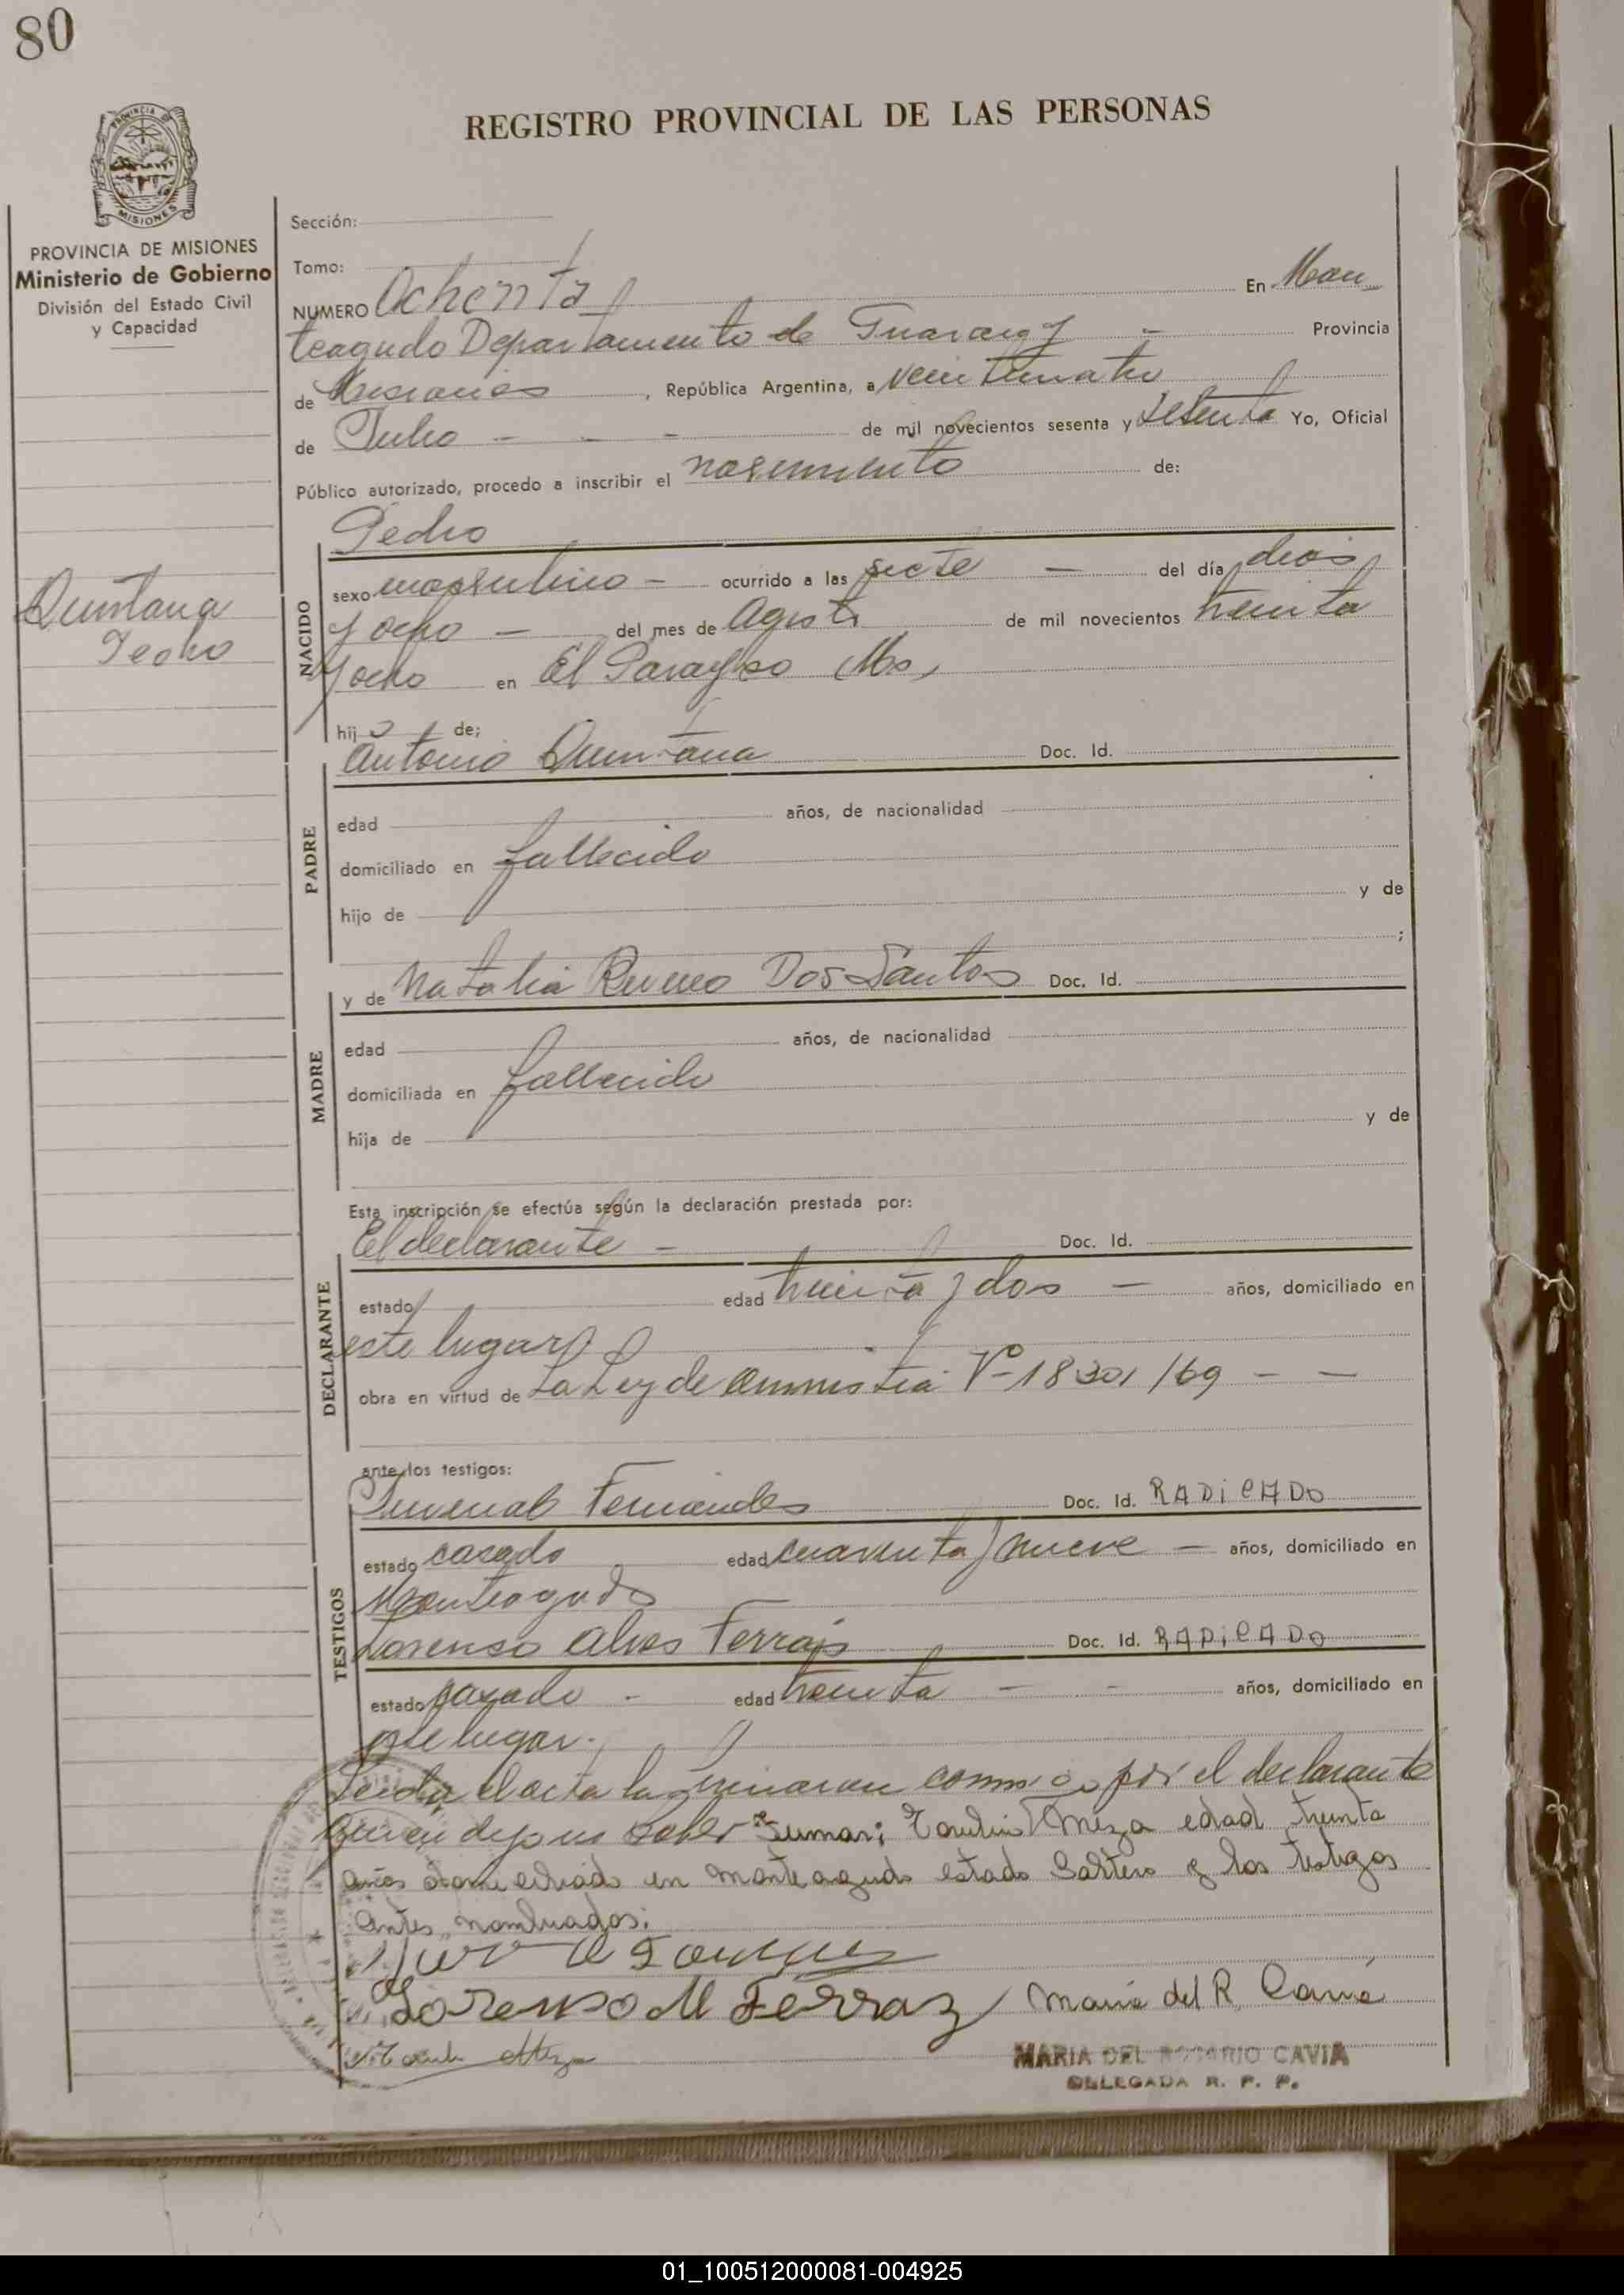 80
REGISTRO PROVINCIAL DE LAS PERSONAS
PROVINCIA
MISIONES
PROVINCIA DE MISIONES
Ministerio de Gobierno
División del Estado Civil
y Capacidad
Quintana
Pedro
Sección:
Tomo:
NUMERO Ochenta En Mon
teagudo Departamento de Guarany - Provincia
de Misiones , República Argentina, a veinticuatro
de Julio - - - de mil novecientos sesenta y setenta Yo, Oficial
Público autorizado, procedo a inscribir el nasimiento de:
Pedro
NACIDO
sexo masculino - ocurrido a las siete - del día dies
y ocho - del mes de Agosto de mil novecientos treinta
y ocho en El Parayso Ms,
hijo de;
Antonio Quintana Doc. Id.
PADRE
edad años, de nacionalidad
domiciliado en fallecido
hijo de y de
;
y de Natalia Dos Santos Doc. Id.
MADRE
edad años, de nacionalidad
domiciliada en fallecido
hija de y de
Esta inscripción se efectúa según la declaración prestada por:
El declarante - Doc. Id.
DECLARANTE
estado edad treinta y dos - años, domiciliado en
este lugar
obra en virtud de La Ley de Amnistia Nº 18301/69 - -
ante los testigos:
Juvenal Fernandes Doc. Id. RADiCADO
TESTIGOS
estado casado edad cuarenta y nueve - años, domiciliado en
Monteagudo
Lorenso Alves Ferrais Doc. Id. RADiCADO
estado casado - edad treinta - - años, domiciliado en
este lugar.
Leida el acta la firmaron conmigo por el declarante
quien dijo no saber firmar; Meza edad treinta
años domiciliado en Monteagudo estado Soltero y los testigos
antes nombrados.
Lorenso M Ferraz Maria del R Cavia
Meza
MARIA DEL ROSARIO CAVIA
DELEGADA R. P. P.
01_100512000081-004925